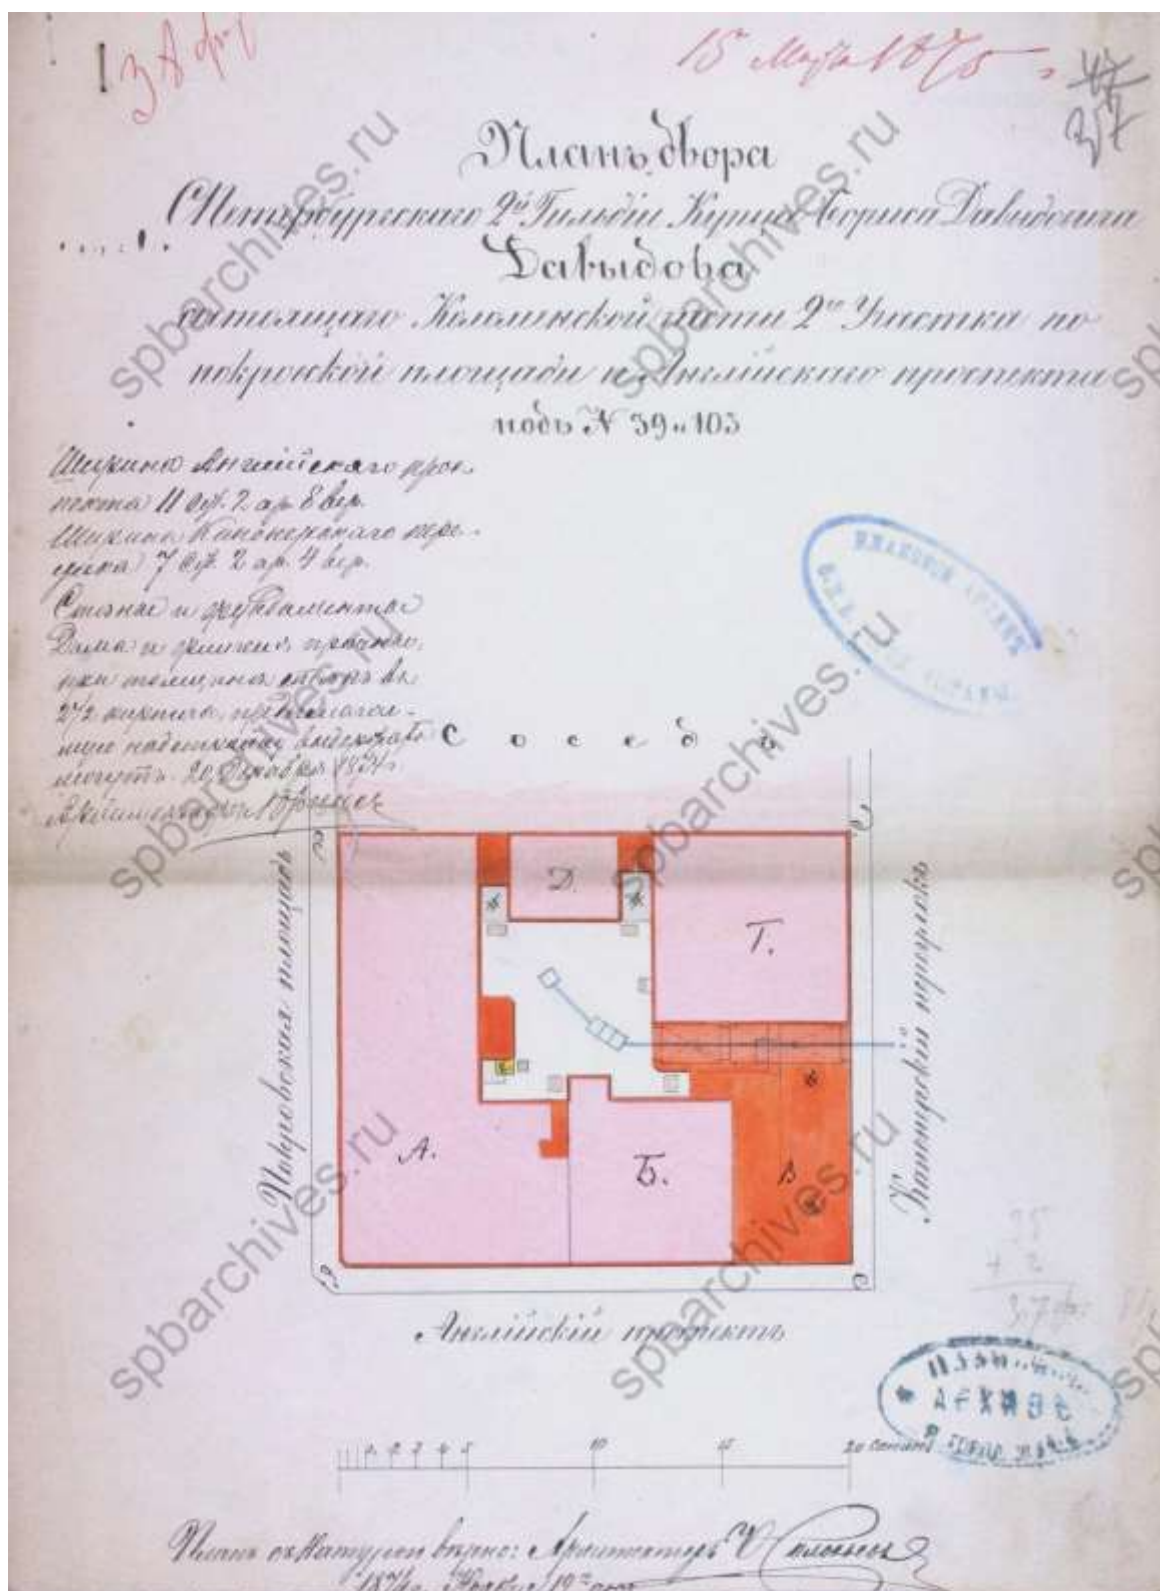 15 Марта 1875 г.
37
Планъ двора
СПетербургскаго 2й Гильдіи Купца Бориса Давидовича
Давыдова
состоящаго Коломенской части 2го Участка по
покровской площади и Англійскаго проспекта
подъ № 39 и 103
Ширина Англійскаго прос-
пекта 11 саж. 2 ар. 8 вер.
Ширина Канонерскаго пере-
улка 7 саж. 2 ар. 4 вер.
Стѣны и фундаменты
Дома и флигеля прочны,
толщина стѣнъ въ
2½ кирпича, предполагае-
мую надстройку выдержать
могутъ. 20 Декабря 1874 г.
Архитекторъ
Сосѣдъ
Покровская площадь
Д.
Г.
Канонерскій переулокъ
А.
Б.
В
Англійскій проспектъ
25
+ 2
37
ПЛАНОВОЙ АРХИВЪ
АРХИВЪ
1 2 3 4 5 10 15 20 Сажень
Планъ съ Натурой вѣрно: Архитекторъ
1874 г. Ноября 19го дня
spbarchives.ru